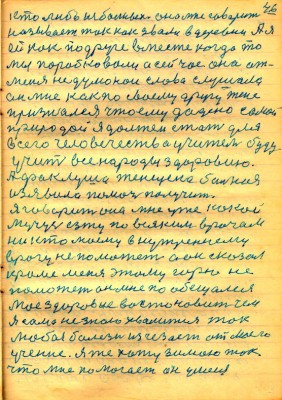 46
кто любь не больных. она те говорит
называет так как звали в деревни. А я
ей как подруге вместе когда то
мы поработовали а сейчас она от
меня не думо кои слова слушала
он мне как по своему другу мене
признался что ему дадено самой
природой я должен стат для
всего человечества учителем буду
учит все народы здоровию.
А фраклуша женщена больная
взяволо помоч получит.
Я говорит она мне уже какой
мучус езжу по всяким врачам
ни кто моему внутреннему
врогу не поможет а он сказал
кроме меня этому горю не
поможет он мне по обещался
мое здоровие востоновит чем
я само не знаю хвалится так
любая болезн изчезает от моего
учение. Я те хожу зимою так
что мне помогает он уменя